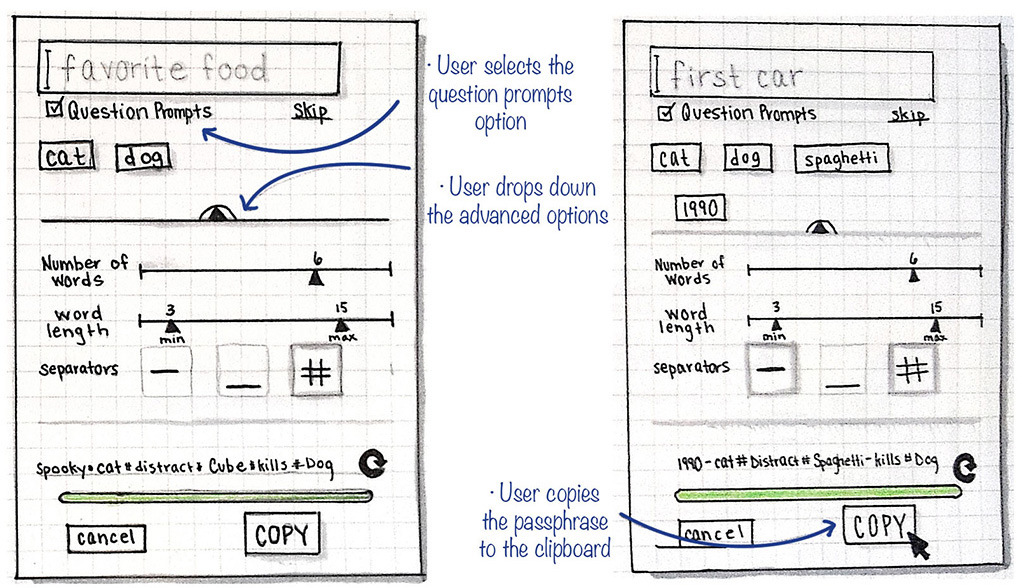 favorite food
Question Prompts
skip
cat
dog
Number of
words
6
word
length
3
min
15
max
separators
— _ #
Spooky#cat#distract#Cube#kills#Dog
cancel
COPY
· User selects the
question prompts
option
· User drops down
the advanced options
· User copies
the passphrase
to the clipboard
first car
Question Prompts
skip
cat
dog
spaghetti
1990
Number of
words
6
word
length
3
min
15
max
separators
— _ #
1990-cat#Distract#Spaghetti-kills#Dog
cancel
COPY